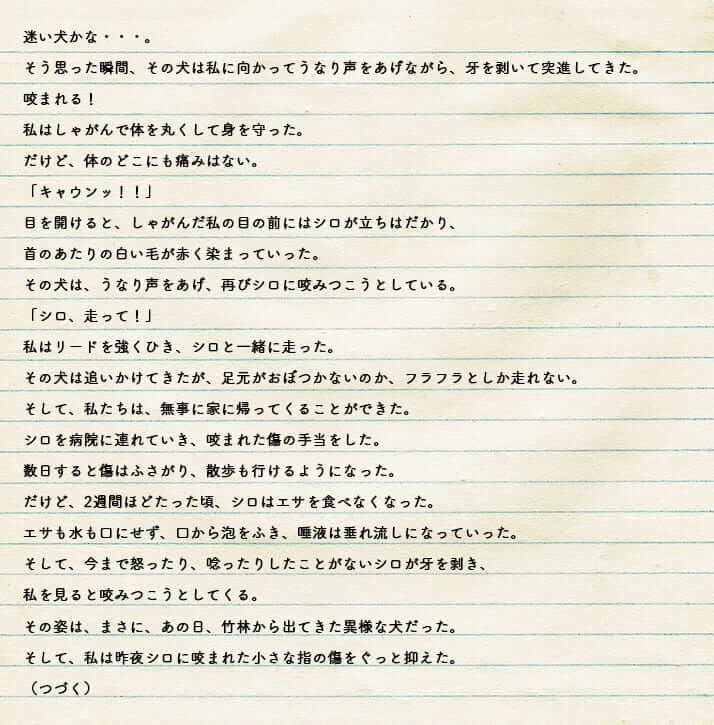 迷い犬かな・・・。
そう思った瞬間、その犬は私に向かってうなり声をあげながら、牙を剥いて突進してきた。
咬まれる！
私はしゃがんで体を丸くして身を守った。
だけど、体のどこにも痛みはない。
「キャウンッ！！」
目を開けると、しゃがんだ私の目の前にはシロが立ちはだかり、
首のあたりの白い毛が赤く染まっていった。
その犬は、うなり声をあげ、再びシロに咬みつこうとしている。
「シロ、走って！」
私はリードを強くひき、シロと一緒に走った。
その犬は追いかけてきたが、足元がおぼつかないのか、フラフラとしか走れない。
そして、私たちは、無事に家に帰ってくることができた。
シロを病院に連れていき、咬まれた傷の手当をした。
数日すると傷はふさがり、散歩も行けるようになった。
だけど、2週間ほどたった頃、シロはエサを食べなくなった。
エサも水も口にせず、口から泡をふき、唾液は垂れ流しになっていった。
そして、今まで怒ったり、唸ったりしたことがないシロが牙を剥き、
私を見ると咬みつこうとしてくる。
その姿は、まさに、あの日、竹林から出てきた異様な犬だった。
そして、私は昨夜シロに咬まれた小さな指の傷をぐっと抑えた。
（つづく）